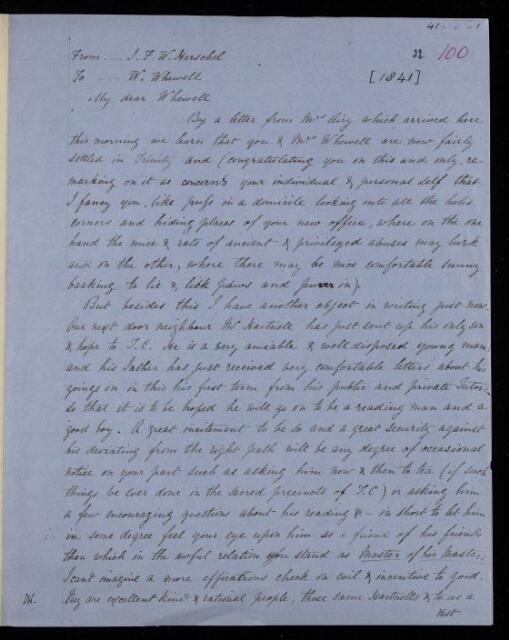 41. . . . 1
From ---- J. F. W. Herschel 22 100
To ---- W. Whewell [1841]
My dear Whewell
By a letter from Mrs Airy which arrived here
this morning we learn that you & Mrs Whewell are now fairly
settled in Trinity and (congratulating you on this and only re-
marking on it as concerns your individual & personal self that
I fancy you, like puss in a domicile looking into all the holes
corners and hiding places of your new office, where on the one
hand the mice & rats of ancient & privileged abuses may lurk
and on the other, where there may be nice comfortable sunny
basking to lie & lick paws and purr in).
But besides this I have another object in writing just now
Our next door neighbour Mr Hartnell has just sent up his only son
& hope to T.C. He is a very amiable & well disposed young man
and his Father has just received very comfortable letters about his
goings on in this his first term from his public and private Tutor,-
so that it is to be hoped he will go on to be a reading man and a
good boy. A great incitement to be so and a great security against
his deviating from the right path will be any degree of occasional
notice on your part such as asking him now & then to tea (if such
things be ever done in the sacred precincts of T.C) or asking him
a few encouraging questions about his reading &- in short to let him
in some degree feel your eye upon him as a friend of his friends
than which in the awful relation you stand as Master of his Master,
I cant imagine a more efficatious check on evil & incentive to good.
They are excellent kind & rational people, these same Hartnells & to us a
vast